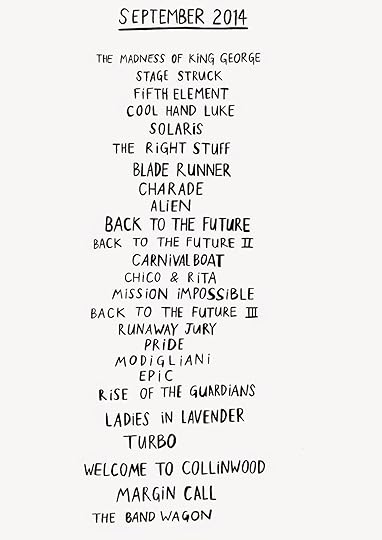 SEPTEMBER 2014
THE MADNESS OF KING GEORGE
STAGE STRUCK
FIFTH ELEMENT
COOL HAND LUKE
SOLARIS
THE RIGHT STUFF
BLADE RUNNER
CHARADE
ALIEN
BACK TO THE FUTURE
BACK TO THE FUTURE II
CARNIVAL BOAT
CHICO & RITA
MISSION IMPOSSIBLE
BACK TO THE FUTURE III
RUNAWAY JURY
PRIDE
MODIGLIANI
EPIC
RISE OF THE GUARDIANS
LADIES IN LAVENDER
TURBO
WELCOME TO COLLINWOOD
MARGIN CALL
THE BAND WAGON